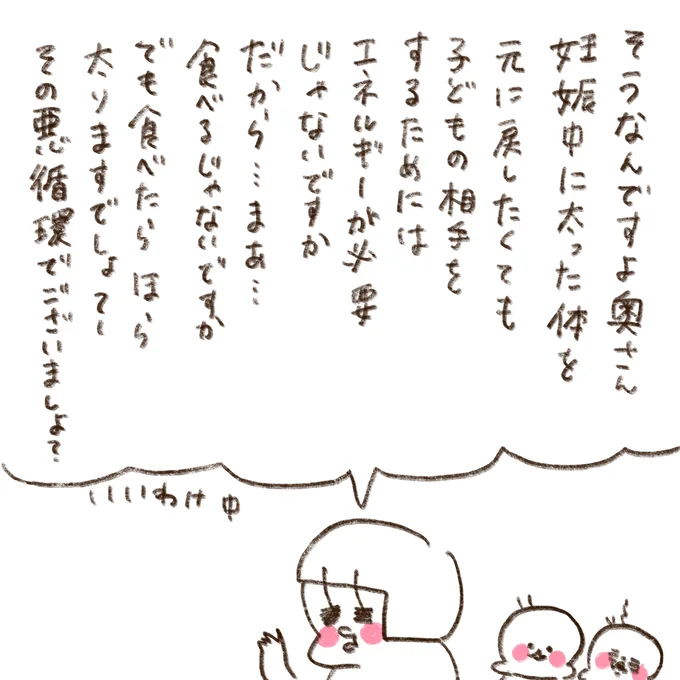 そうなんですよ奥さん
妊娠中に太った体を
元に戻したくても
子どもの相手を
するためには
エネルギーが必要
じゃないですか
だから…まあ…
食べるじゃないですか
でも食べたらほら
太りますでしょてー
その悪循環でございましょ？
いいわけ中